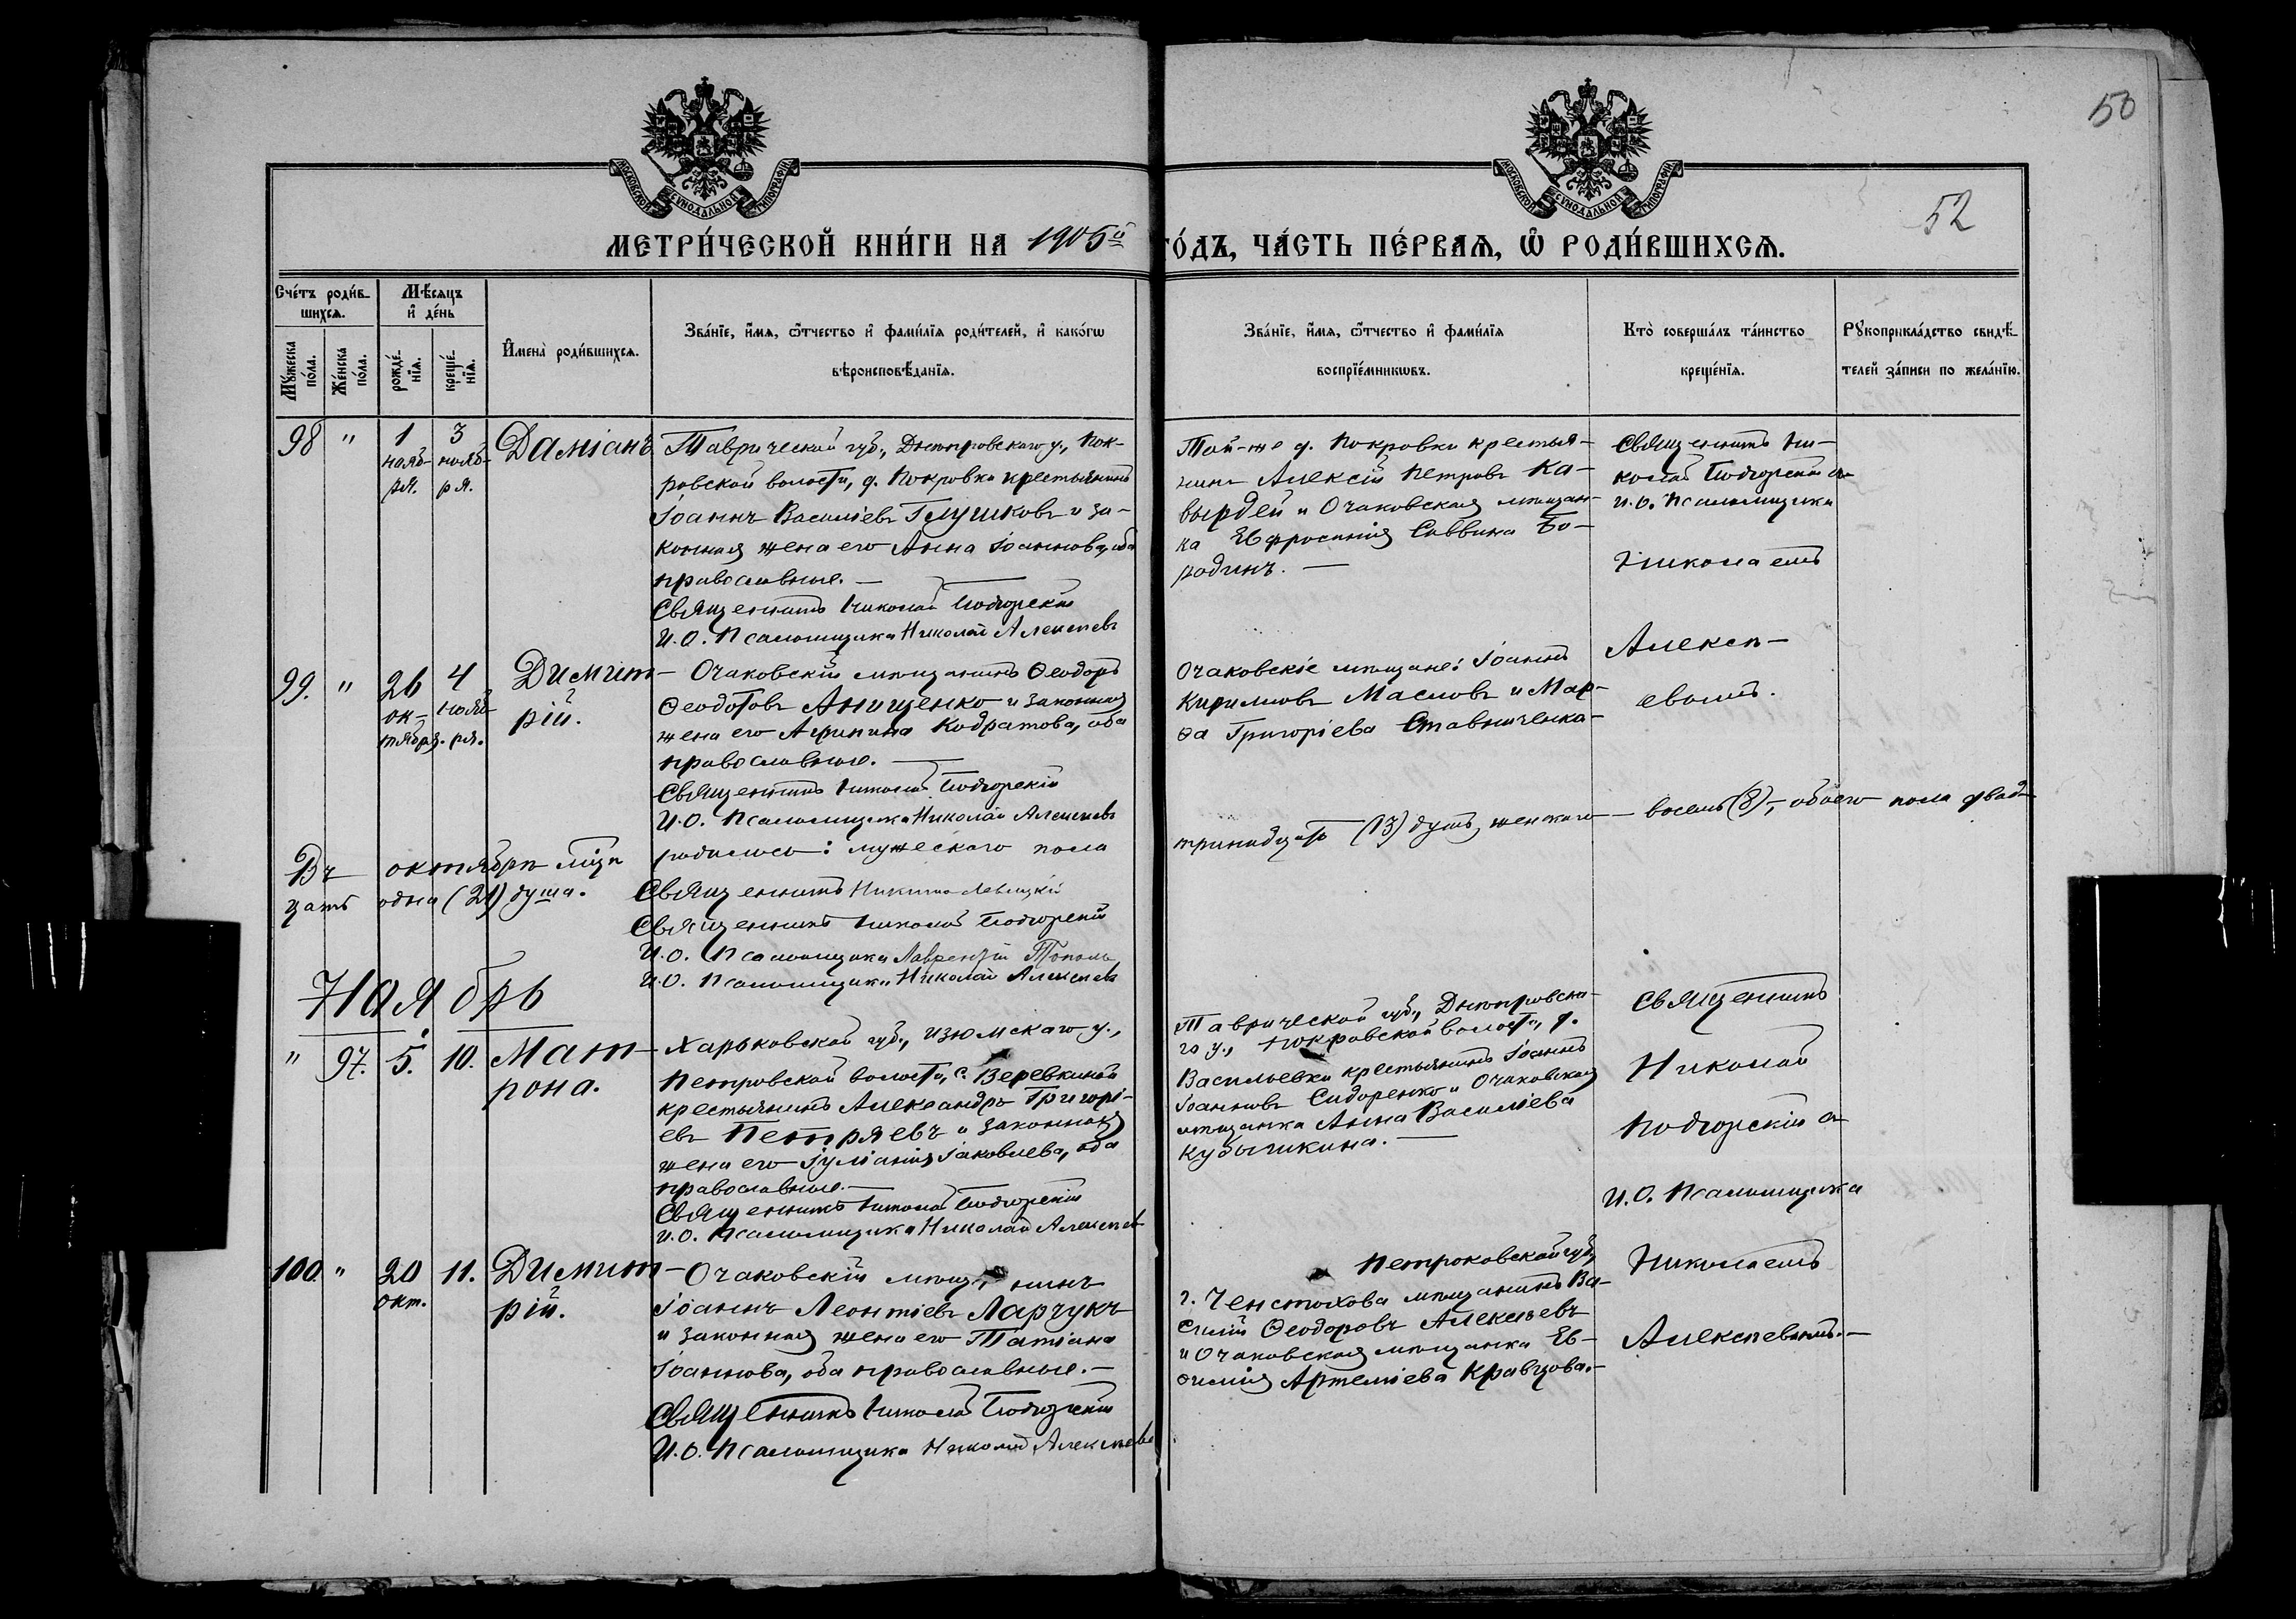 50
52
МОСКОВСКОЙ СѴНОДАЛЬНОЙ ТИПОГРАФІИ
МОСКОВСКОЙ СѴНОДАЛЬНОЙ ТИПОГРАФІИ
МЕТРИ́ЧЕСКОЙ КНИ́ГИ НА 1905й
ГО́ДЪ, ЧА́СТЬ ПЕ́РВАѦ, Ѡ҆ РОДИ́ВШИХСѦ.
Сче́тъ роди́в-
шихсѧ.
Мѣ́сѧцъ
и҆ де́нь
Мꙋ́жеска по́ла.
Же́нска по́ла.
рожде́-
нїѧ.
креще́-
нїѧ.
И҆мена̀ роди́вшихсѧ.
Зва́нїе, и҆́мѧ, ѻ҆́тчество и҆ фами́лїѧ роди́телей, и҆ како́гѡ
вѣроисповѣ́данїѧ.
Зва́нїе, и҆́мѧ, ѻ҆́тчество и҆ фами́лїѧ
воспрїе́мникѡвъ.
Кто̀ соверша́лъ та́инство
креще́нїѧ.
Рꙋкоприкла́дство свидѣ́-
телей за́писи по жела́нїю.
98 " 1 3 Даміанъ
нояб- нояб-
ря. ря.
Таврической губ., Днѣпровскаго у., Пок-
ровской волости, д. Покровки крестьянинъ
Іоаннъ Василіевъ Глушковъ и за-
конная жена его Анна Іоаннова, оба
православные. —
Священникъ Николай Подгорскій
И. О. Псаломщика Николай Алексѣевъ
Той-же д. Покровки крестья-
нинъ Алексій Петровъ Ка-
вырдей и Очаковская мѣщан-
ка Евфросинія Саввина Бо-
родинъ. —
Священникъ Ни-
колай Подгорскій съ
и. о. Псаломщика
Николаемъ
Алексѣ-
евымъ.
99. " 26 4 Димит-
ок- нояб-
тября. ря. рій.
Очаковскій мѣщанинъ Ѳеодоръ
Ѳеодотовъ Анищенко и законная
жена его Агрипина Кодратова, оба
православные. —
Священникъ Николай Подгорскій
И. О. Псаломщика Николай Алексѣевъ
Очаковскіе мѣщане: Іоаннъ
Кирилловъ Масловъ и Мар-
ѳа Григоріева Ставниченко-
Въ октябрѣ мѣсяцѣ родилось: мужескаго пола
тринадцать (13) душъ, женскаго — восемь (8), — обоего пола двад-
цать одна (21) душа.
Священникъ Никита Левицкій
Священникъ Николай Подгорскій
И. О. Псаломщика Лаврентій Тополь
И. О. Псаломщика Николай Алексѣевъ
Ноябрь
" 97. 5. 10. Мат-
рона.
Харьковской губ., Изюмскаго у.,
Петровской волости, с. Веревкиной
крестьянинъ Александръ Григорі-
евъ Петряевъ и законная
жена его Іуліанія Іаковлева, оба
православные. —
Священникъ Николай Подгорскій
И. О. Псаломщика Николай Алексѣевъ
Таврической губ., Днѣпровска-
го у., Покровской волости, д.
Васильевки крестьянинъ Іоаннъ
Іоанновъ Сидоренко и Очаковская
мѣщанка Анна Василіева
Кубышкина. —
Священникъ
Николай
Подгорскій съ
и. о. Псаломщика
Николаемъ
Алексѣевымъ. —
100 " 20 11. Димит-
окт. рій.
Очаковскій мѣщанинъ
Іоаннъ Леонтіевъ Ларчукъ
и законная жена его Татіана
Іоаннова, оба православные. —
Священникъ Николай Подгорскій
И. О. Псаломщика Николай Алексѣевъ
Петроковской губ.,
г. Ченстохова мѣщанинъ Ва-
силій Ѳеодоровъ Алексѣевъ
и Очаковская мѣщанка Ев-
ѳимія Артеміева Кравцова. —